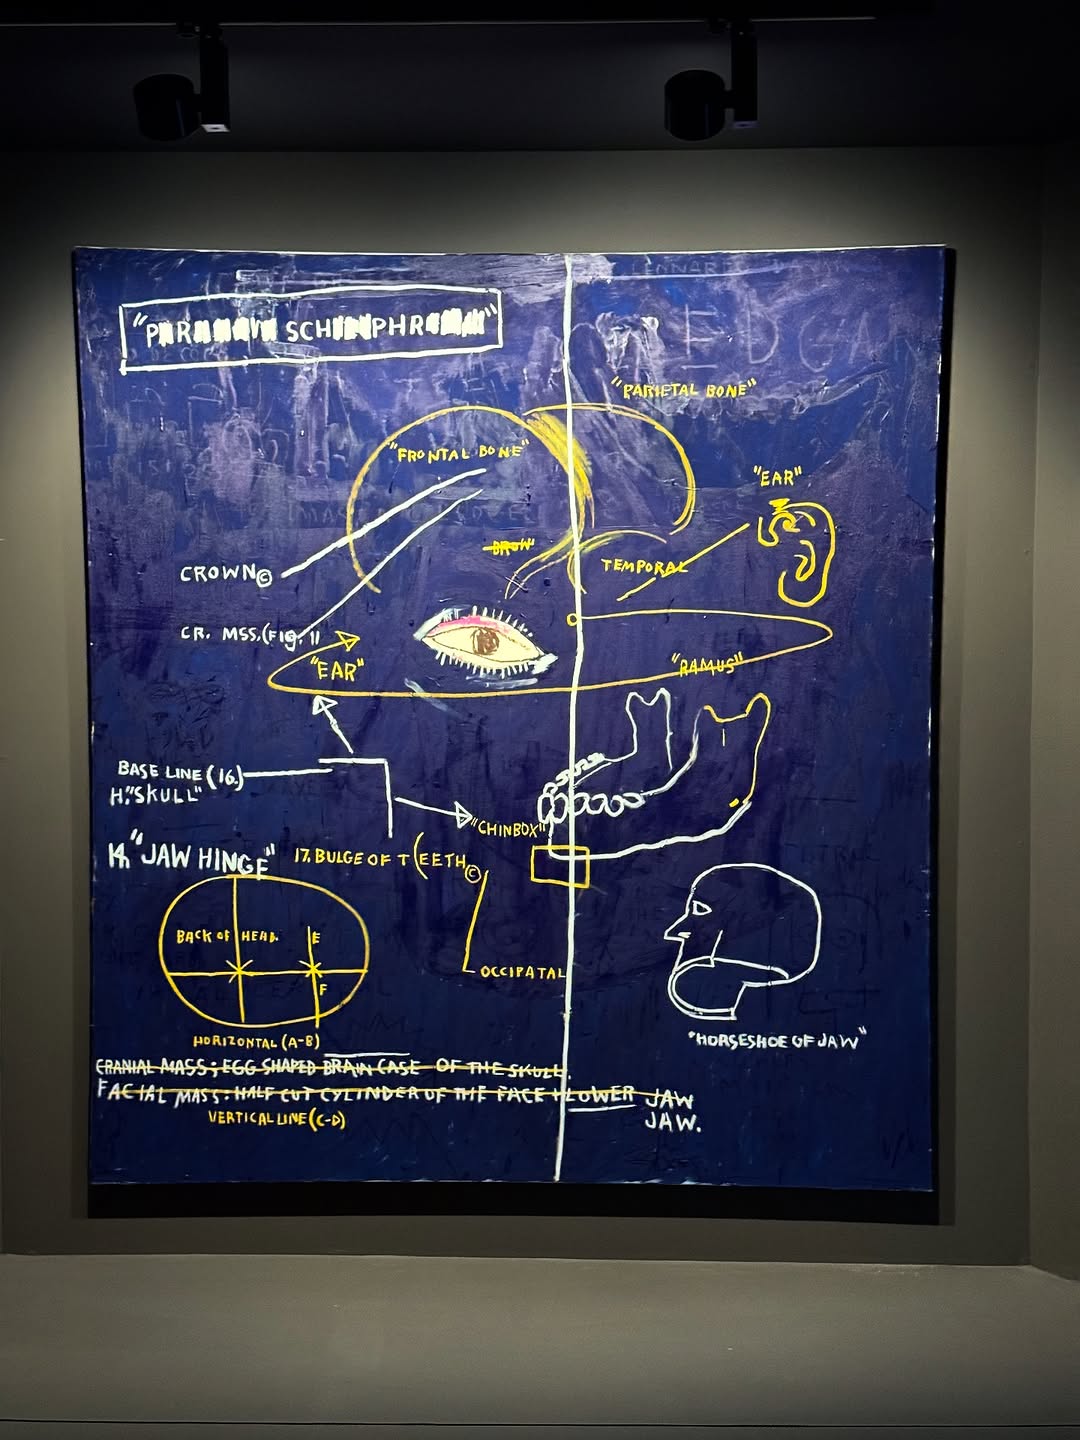 EDGAR
"PARIETAL BONE"
"FRONTAL BONE"
"EAR"
BROW
TEMPORAL
CROWN©
CR. MSS.(FIG. 1)
"EAR"
"RAMUS"
BASE LINE (16.)
H."SKULL"
"CHINBOX"
"JAW HINGE"
17. BULGE OF T(EETH©
BACK OF HEAD.
E
F
OCCIPATAL
HORIZONTAL (A-B)
"HORSESHOE OF JAW"
CRANIAL MASS; EGG SHAPED BRAIN CASE OF THE SKULL.
FACIAL MASS: HALF CUT CYLINDER OF THE FACE + LOWER JAW
JAW.
VERTICAL LINE (C-D)